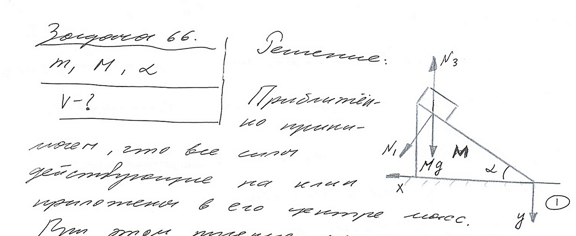 Задача 66.
m, M, α
V-?
Решение:
Приближён-
но прини-
маем, что все силы
действующие на клин
приложены в его центре масс.
При этом
N3
N1
Mg
M
α
x
y
1